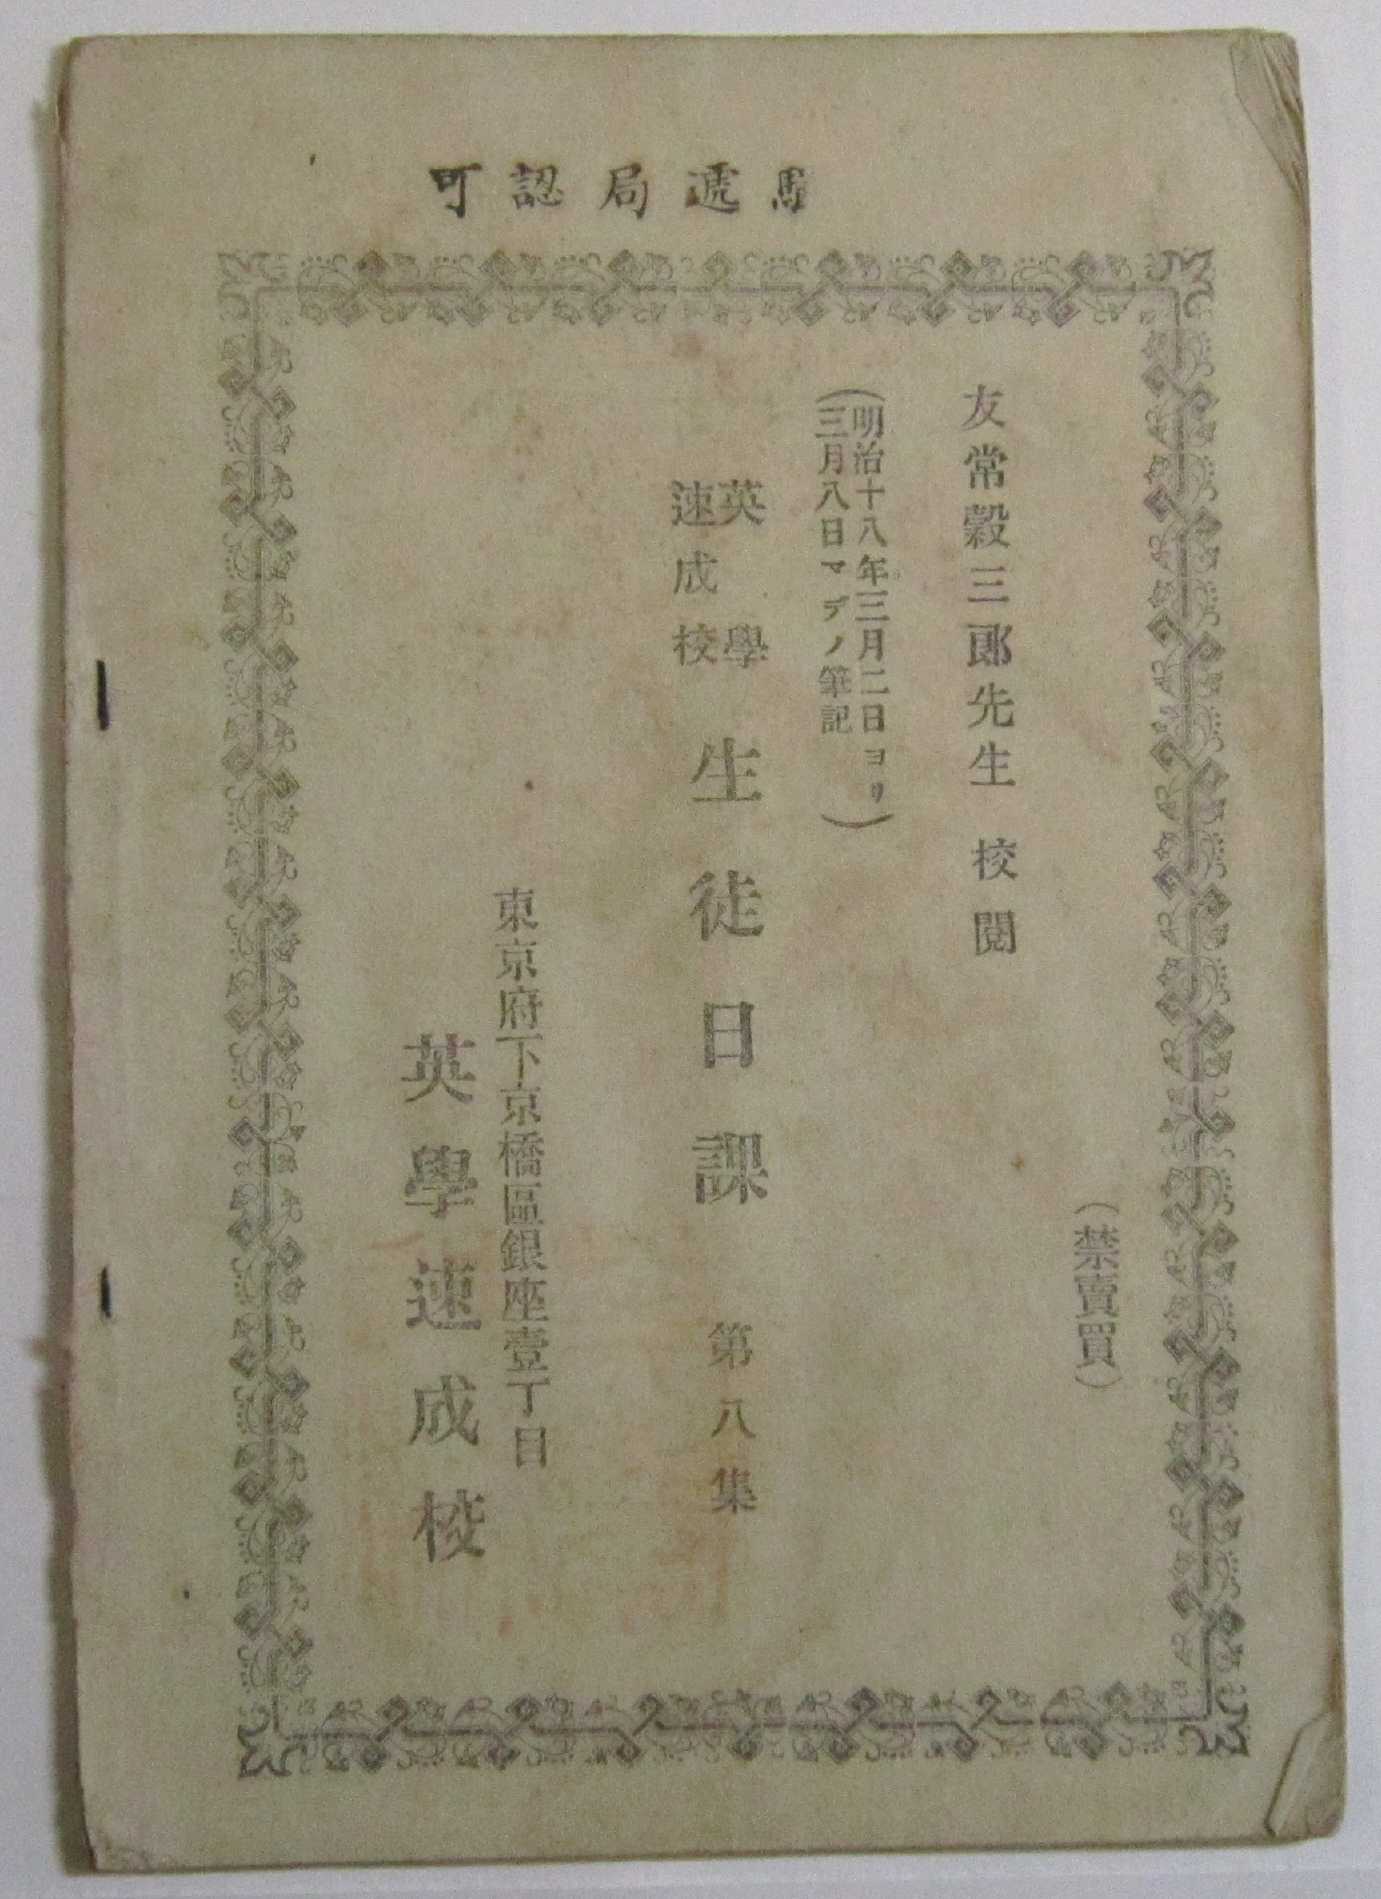 驛遞局認可
(禁賣買)
友常穀三郎先生 校閲
(明治十八年三月二日ヨリ
三月八日マデノ筆記)
英學
速成校
生徒日課 第八集
東京府下京橋區銀座壹丁目
英學速成校